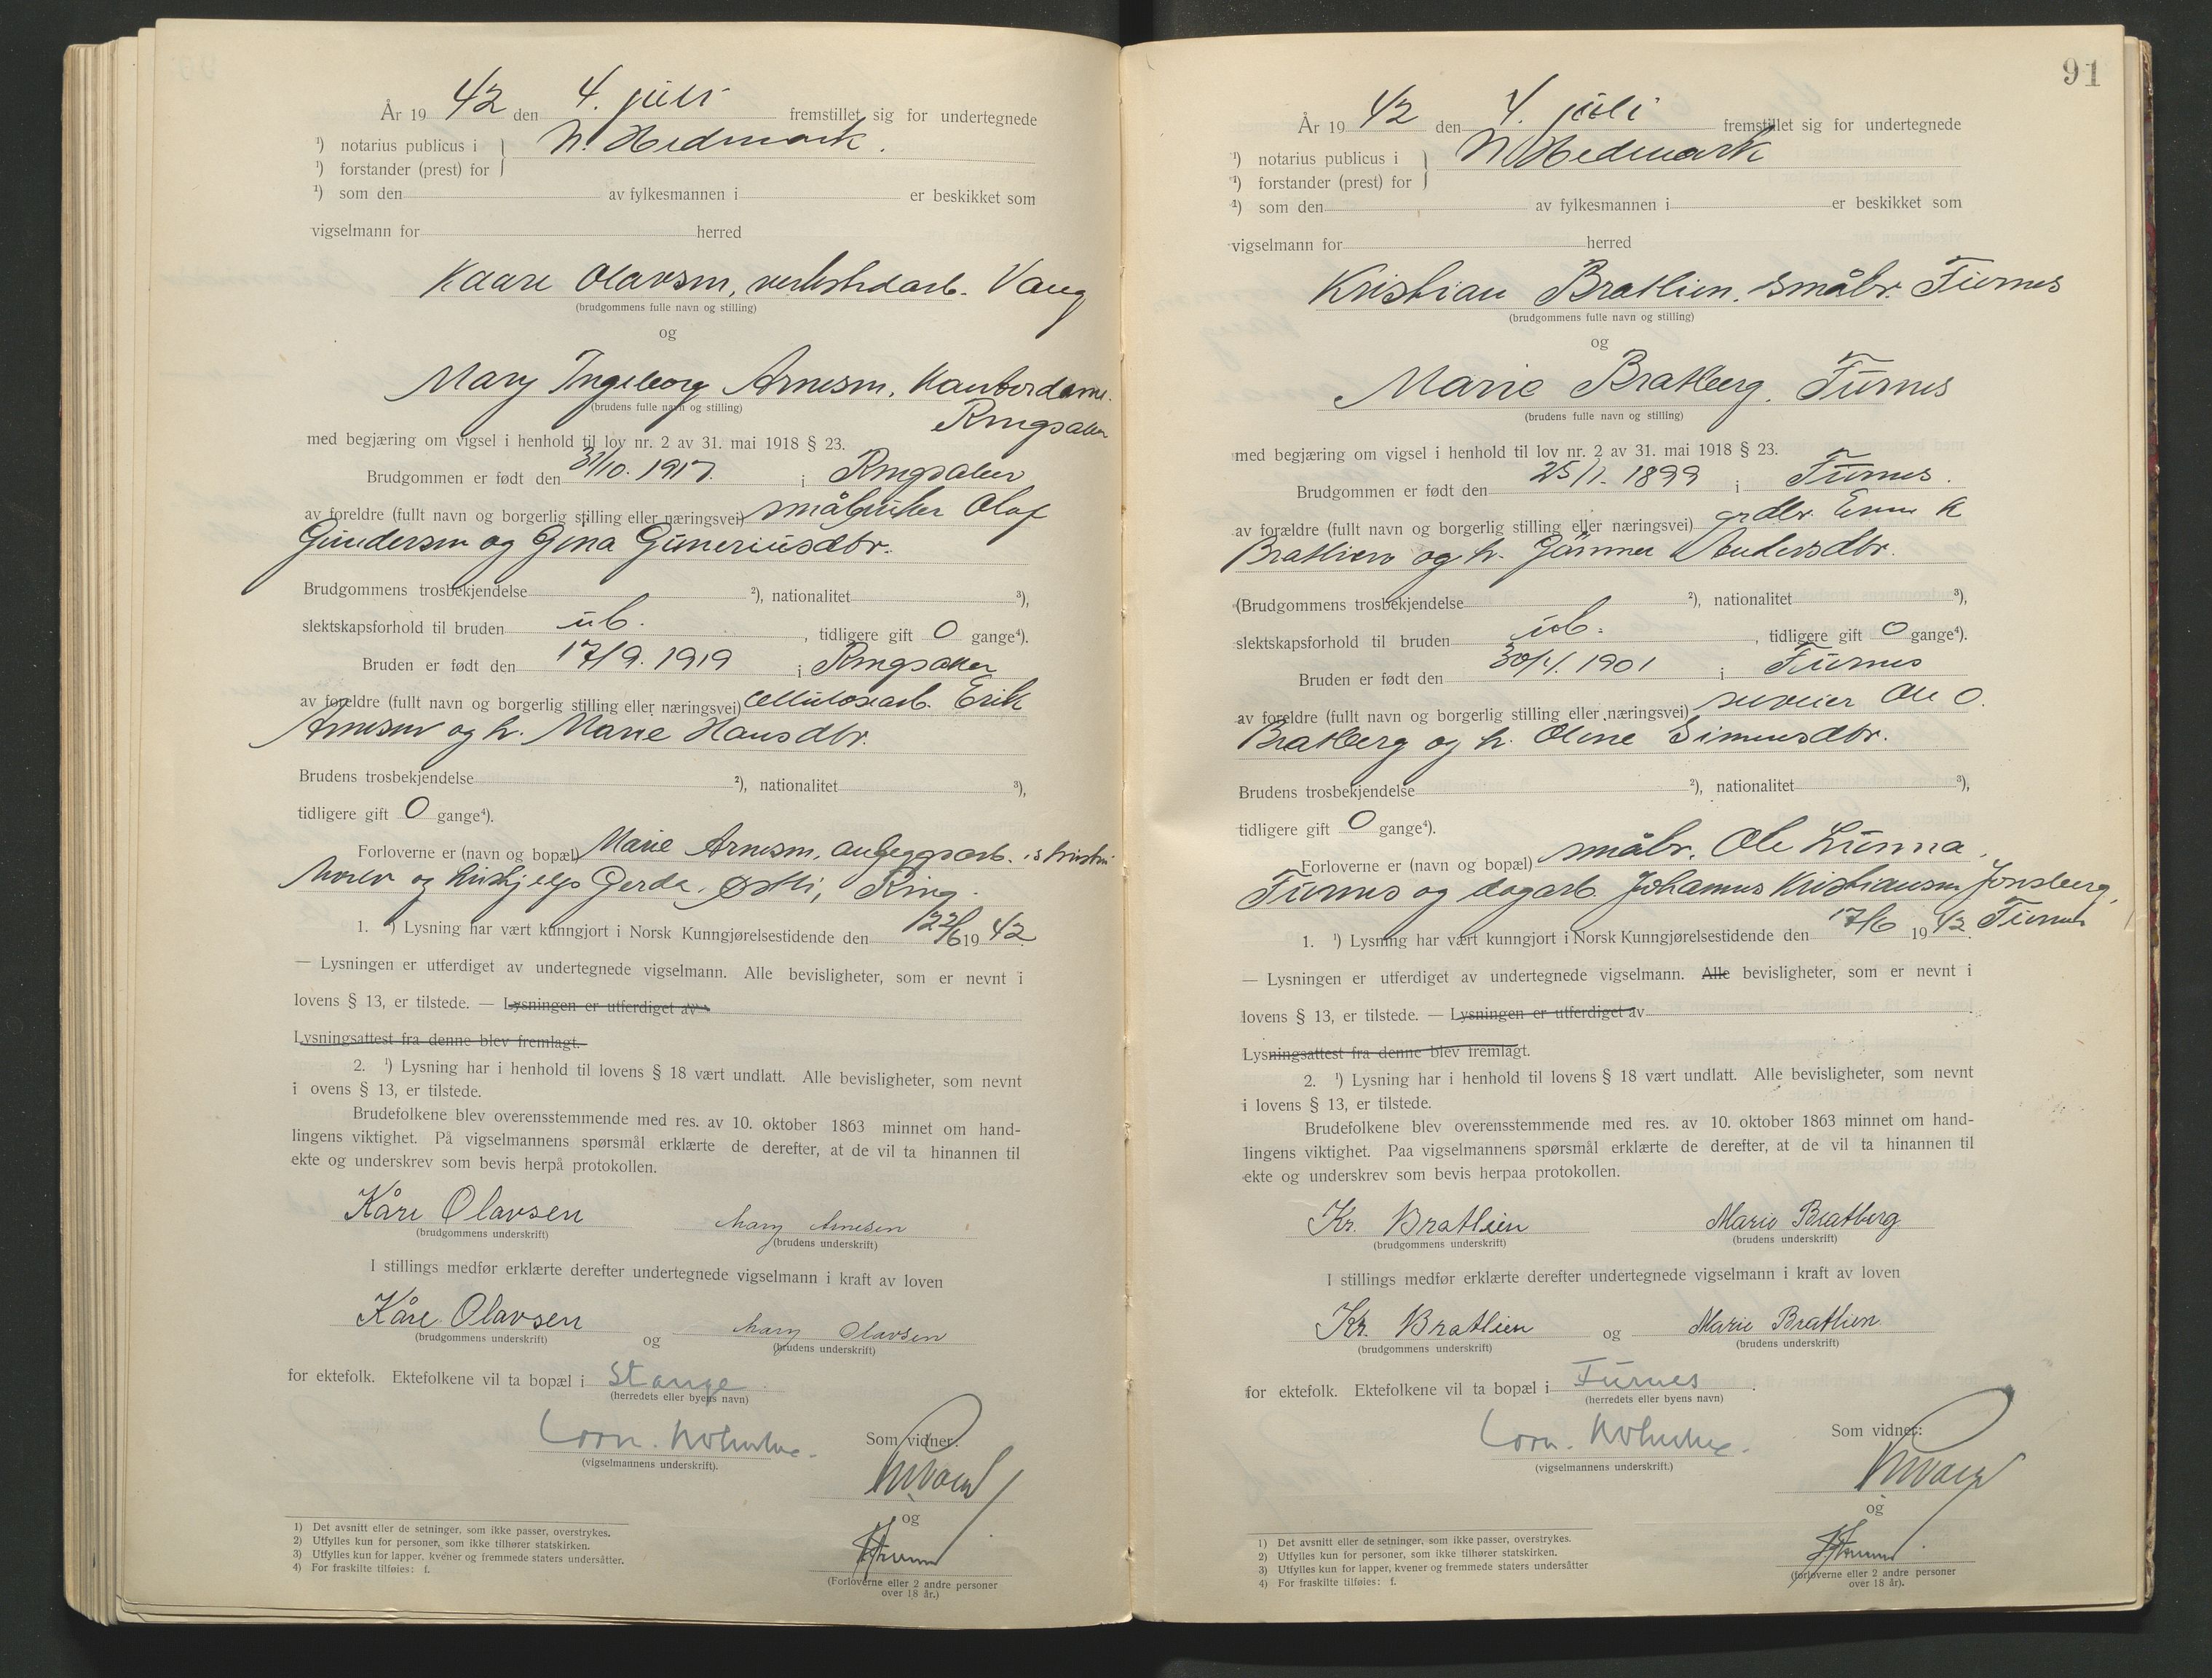 År 19 42 den 4. juli fremstillet sig for undertegnede
¹) notarius publicus i N. Hedmark.
¹) forstander (prest) for
¹) som den av fylkesmannen i er beskikket som
vigselmann for herred
Kaare Olavsen, verkstedarb. Vang
(brudgommens fulle navn og stilling)
og
Mary Ingeborg Arnesen, Kontordame.
(brudens fulle navn og stilling)
Ringsaker
med begjæring om vigsel i henhold til lov nr. 2 av 31. mai 1918 § 23.
Brudgommen er født den 31/10. 1917. i Ringsaker
av foreldre (fullt navn og borgerlig stilling eller næringsvei) småbruker Olaf
Gundersen og Gina Guneriusdtr.
Brudgommens trosbekjendelse ²), nationalitet ³),
slektskapsforhold til bruden ub. , tidligere gift 0 gange⁴).
Bruden er født den 17/9. 1919 i Ringsaker
av foreldre (fullt navn og borgerlig stilling eller næringsvei) cellulosearb. Erik
Arnesen og h. Marie Hansdtr.
Brudens trosbekjendelse ²), nationalitet ³),
tidligere gift 0 gange⁴).
Forloverne er (navn og bopæl) Marie Arnesen, anleggsarb.
og Gerda Østli, Ring.
1. ¹) Lysning har vært kunngjort i Norsk Kunngjørelsestidende den 22/6 19 42
— Lysningen er utferdiget av undertegnede vigselmann. Alle bevisligheter, som er nevnt i
lovens § 13, er tilstede. — Lysningen er utferdiget av
Lysningsattest fra denne blev fremlagt.
2. ¹) Lysning har i henhold til lovens § 18 vært undlatt. Alle bevisligheter, som nevnt
i ovens § 13, er tilstede.
Brudefolkene blev overensstemmende med res. av 10. oktober 1863 minnet om hand-
lingens viktighet. På vigselmannens spørsmål erklærte de derefter, at de vil ta hinannen til
ekte og underskrev som bevis herpå protokollen.
Kåre Olavsen Mary Arnesen
(brudgommens underskrift) (brudens underskrift)
I stillings medfør erklærte derefter undertegnede vigselmann i kraft av loven
Kåre Olavsen og Mary Olavsen
(brudgommens underskrift) (brudens underskrift)
for ektefolk. Ektefolkene vil ta bopæl i Stange
(herredets eller byens navn)
Som vidner:
(vigselmannens underskrift).
og
(Forloverne eller 2 andre personer
over 18 år.)
1) Det avsnitt eller de setninger, som ikke passer, overstrykes.
2) Utfylles kun for personer, som ikke tilhører statskirken.
3) Utfylles kun for lapper, kvener og fremmede staters undersåtter.
4) For fraskilte tilføies: f.
91
År 19 42 den 4. juli fremstillet sig for undertegnede
¹) notarius publicus i N Hedmark
¹) forstander (prest) for
¹) som den av fylkesmannen i er beskikket som
vigselmann for herred
Kristian Bratlien, småbr. Furnes
(brudgommens fulle navn og stilling)
og
Marie Bratberg, Furnes
(brudens fulle navn og stilling)
med begjæring om vigsel i henhold til lov nr. 2 av 31. mai 1918 § 23.
Brudgommen er født den 25/1. 1899 i Furnes.
av forældre (fullt navn og borgerlig stilling eller næringsvei) grdbr. Even K
Bratlien og h. Gunner Andersdtr.
(Brudgommens trosbekjendelse ²), nationalitet ³),
slektskapsforhold til bruden ub. , tidligere gift 0 gange⁴).
Bruden er født den 30/4. 1901 i Furnes
av foreldre (fullt navn og borgerlig stilling eller næringsvei) Ole O.
Bratberg og h. Oline Simensdtr.
Brudens trosbekjendelse ²), nationalitet ³),
tidligere gift 0 gange⁴).
Forloverne er (navn og bopæl) småbr. Ole Lunna,
Furnes og dagarb. Johannes Kristiansen Jønsberg,
Furnes
1. ¹) Lysning har vært kunngjort i Norsk Kunngjørelsestidende den 17/6 19 42
— Lysningen er utferdiget av undertegnede vigselmann. Alle bevisligheter, som er nevnt i
lovens § 13, er tilstede. — Lysningen er utferdiget av
Lysningsattest fra denne blev fremlagt.
2. ¹) Lysning har i henhold til lovens § 18 vært undlatt. Alle bevisligheter, som nevnt
i lovens § 13, er tilstede.
Brudefolkene blev overensstemmende med res. av 10. oktober 1863 minnet om hand-
lingens viktighet. Paa vigselmannens spørsmål erklærte de derefter, at de vil ta hinannen til
ekte og underskrev som bevis herpaa protokollen.
Kr. Bratlien Marie Bratberg
(brudgommens underskrift) (brudens underskrift)
I stillings medfør erklærte derefter undertegnede vigselmann i kraft av loven
Kr. Bratlien og Marie Bratlien
(brudgommens underskrift) (brudens underskrift)
for ektefolk. Ektefolkene vil ta bopæl i Furnes.
(herredets eller byens navn)
Som vidner:
(vigselmannens underskrift.)
og
(forloverne eller 2 andre personer
over 18 år).
1) Det avsnitt eller de setninger, som ikke passer, overstrykes.
2) Utfylles kun for personer, som ikke tilhører statskirken.
3) Utfylles kun for lapper, kvener og fremmede staters undersåtter
4) For fraskilte tilføies: f.